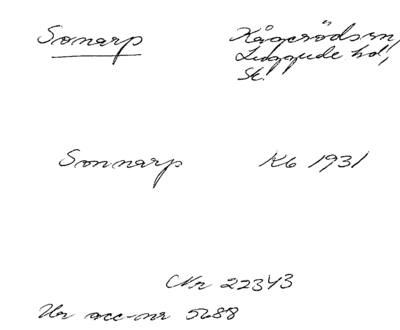 Sonarp
Kågerödssn,
Luggude hd,
Sk.
Sonnarp
Kb 1931
Nr 22343
Ur acc-nr 5688